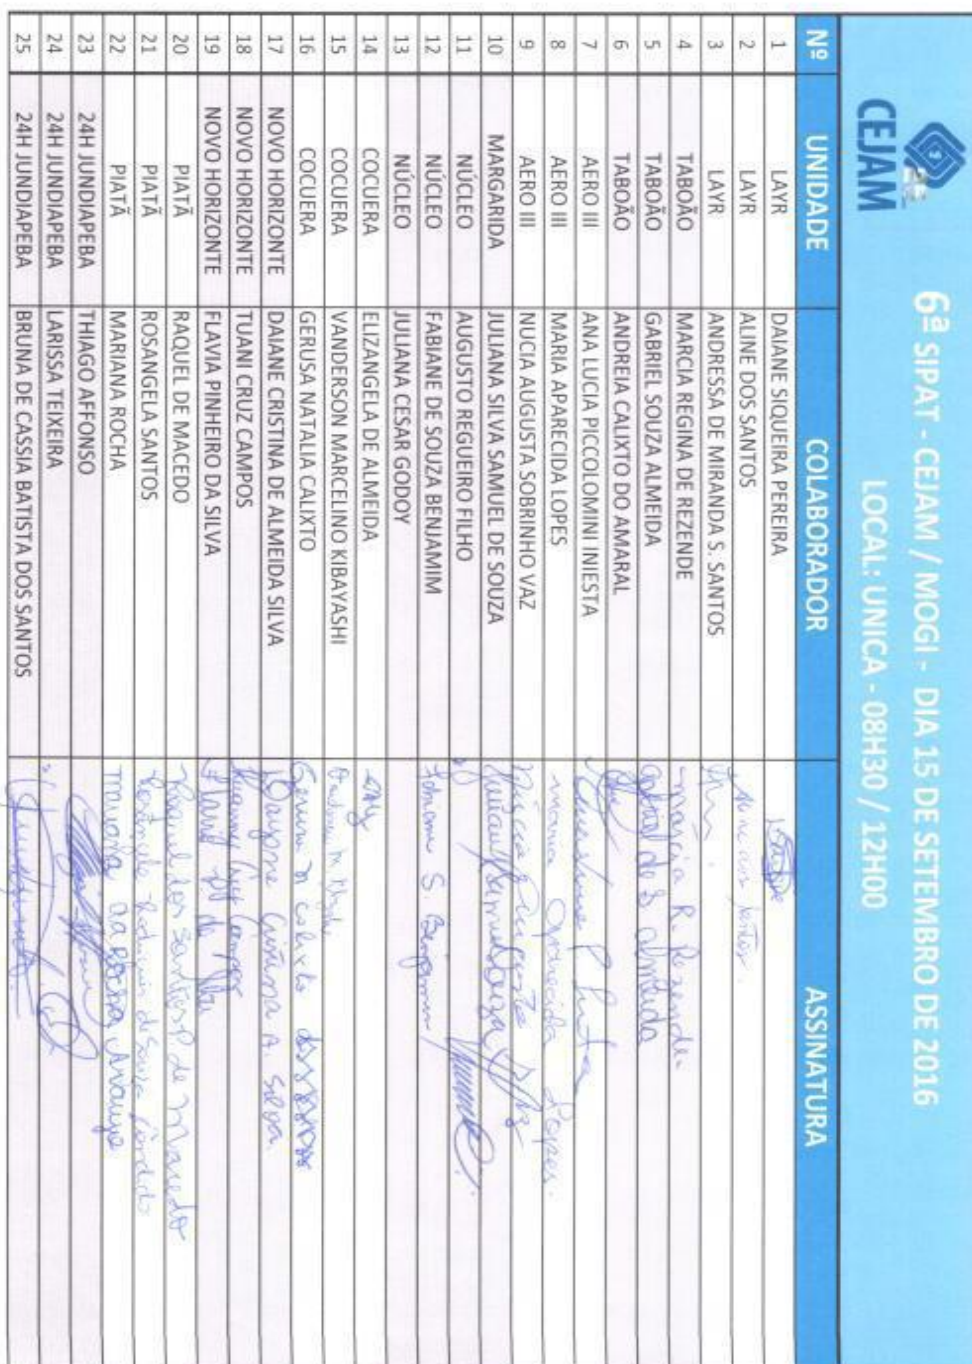 CEJAM
6ª SIPAT - CEJAM / MOGI - DIA 15 DE SETEMBRO DE 2016
LOCAL: UNICA - 08H30 / 12H00
Nº UNIDADE COLABORADOR ASSINATURA
1 LAYR DAIANE SIQUEIRA PEREIRA
2 LAYR ALINE DOS SANTOS
3 LAYR ANDRESSA DE MIRANDA S. SANTOS
4 TABOÃO MARCIA REGINA DE REZENDE marcia R. Rezende.
5 TABOÃO GABRIEL SOUZA ALMEIDA Gabriel de S Almeida
6 TABOÃO ANDREIA CALIXTO DO AMARAL
7 AERO III ANA LUCIA PICCOLOMINI INIESTA
8 AERO III MARIA APARECIDA LOPES maria Aparecida Lopes.
9 AERO III NUCIA AUGUSTA SOBRINHO VAZ
10 MARGARIDA JULIANA SILVA SAMUEL DE SOUZA
11 NÚCLEO AUGUSTO REGUEIRO FILHO
12 NÚCLEO FABIANE DE SOUZA BENJAMIM Fabiane S. Benjamim
13 NÚCLEO JULIANA CESAR GODOY
14 COCUERA ELIZANGELA DE ALMEIDA
15 COCUERA VANDERSON MARCELINO KIBAYASHI
16 COCUERA GERUSA NATALIA CALIXTO Gerusa N Calixto
17 NOVO HORIZONTE DAIANE CRISTINA DE ALMEIDA SILVA Dayane Cristina A. Silva
18 NOVO HORIZONTE TUANI CRUZ CAMPOS
19 NOVO HORIZONTE FLAVIA PINHEIRO DA SILVA
20 PIATÃ RAQUEL DE MACEDO Raquel dos Santos P. de Macedo
21 PIATÃ ROSANGELA SANTOS
22 PIATÃ MARIANA ROCHA Mariana da Rocha Araujo
23 24H JUNDIAPEBA THIAGO AFFONSO
24 24H JUNDIAPEBA LARISSA TEIXEIRA
25 24H JUNDIAPEBA BRUNA DE CASSIA BATISTA DOS SANTOS